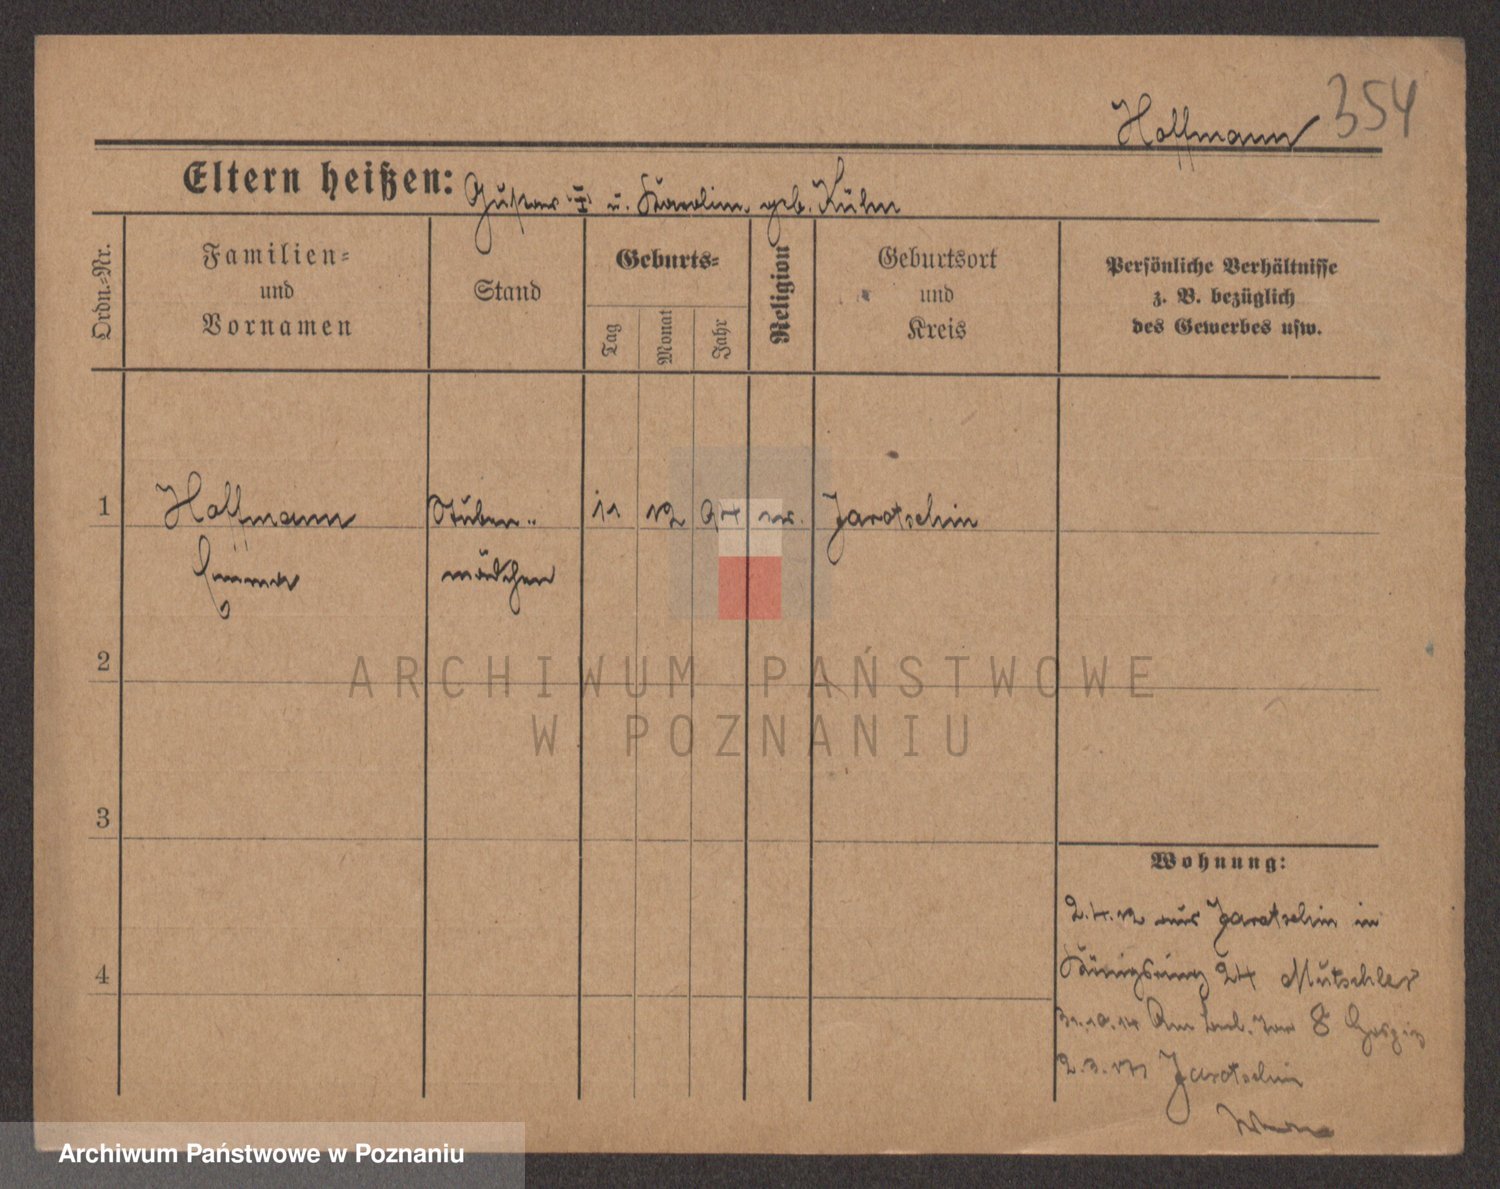 354
Hoffmann
Eltern heißen: Gustav u. Karolin. geb. Kühn
Ordn.=Nr.
Familien=
und
Vornamen
Stand
Geburts=
Tag
Monat
Jahr
Religion
Geburtsort
und
Kreis
Persönliche Verhältnisse
z. B. bezüglich
des Gewerbes usw.
1 Hoffmann Stuben= 11 12 94 Jarotschin
Emma mädchen
2
ARCHIWUM PAŃSTWOWE
W POZNANIU
3
Wohnung:
2.4.12 aus Jarotschin in
Königsring 24 Mutschler
4
31.10.14 Am 8 Hospiz
2.3. Jarotschin
Archiwum Państwowe w Poznaniu